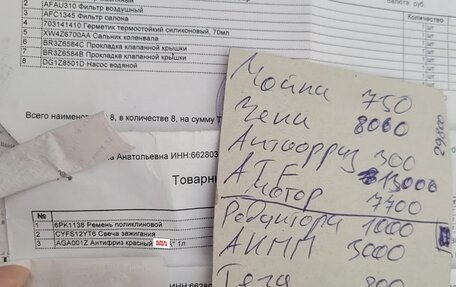 валюта: руб.
Количество
2 AFAU310 Фильтр воздушный
3 AFC1345 Фильтр салона
4 703141410 Герметик термостойкий силиконовый, 70мл
5 XW4Z6700AA Сальник коленвала
6 BR3Z6584C Прокладка клапанной крышки
7 BR3Z6584B Прокладка клапанной крышки
8 DG1Z8501D Насос водяной
шт
шт
шт
Всего наименований 8, в количестве 8, на сумму
на Анатольевна ИНН:66280
Товарн
№
1 6PK1138 Ремень поликлиновой
2 CYFS12YT6 Свеча зажигания
3 AGA001Z Антифриз красный 1л
Мойка 750
Цепи 8060
Антифриз 300
ATF 13000
мотор 7700
Редуктора 1000
АКПП 3000
Тяга 800
29800